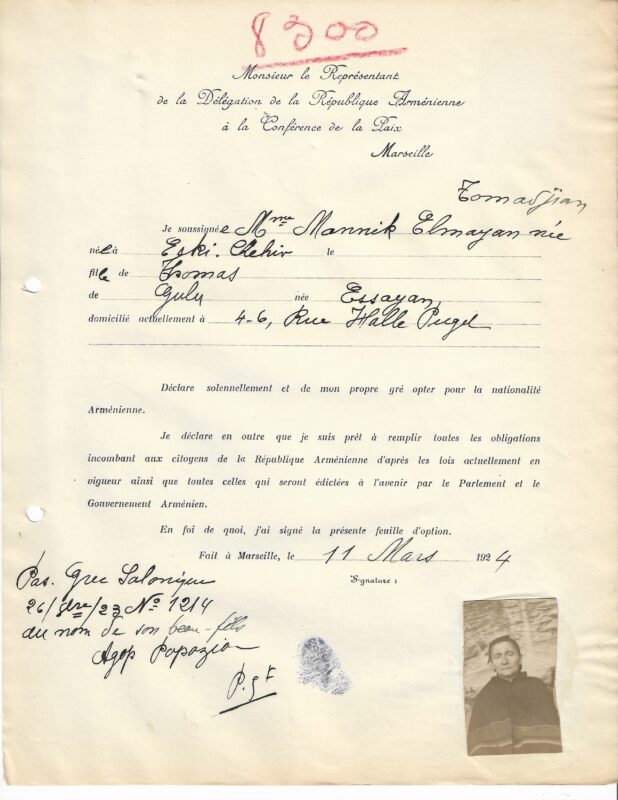 8300
Monsieur le Représentant
de la Délégation de la République Arménienne
à la Conférence de la Paix
Marseille
Tomadjian
Je soussignée Mme Mannik Elmayan née
née à Eski-Chehir le
fille de Thomas
de Gulu née Essayan
domicilié actuellement à 4-6, Rue Halle Puget
Déclare solennellement et de mon propre gré opter pour la nationalité
Arménienne.
Je déclare en outre que je suis prêt à remplir toutes les obligations
incombant aux citoyens de la République Arménienne d'après les lois actuellement en
vigueur ainsi que toutes celles qui seront édictées à l'avenir par le Parlement et le
Gouvernement Arménien.
En foi de quoi, j'ai signé la présente feuille d'option.
Fait à Marseille, le 11 Mars 1924
Signature :
Pas. Grec Salonique
26/8bre/23 No 1214
au nom de son beau-fils
Agop Papazian